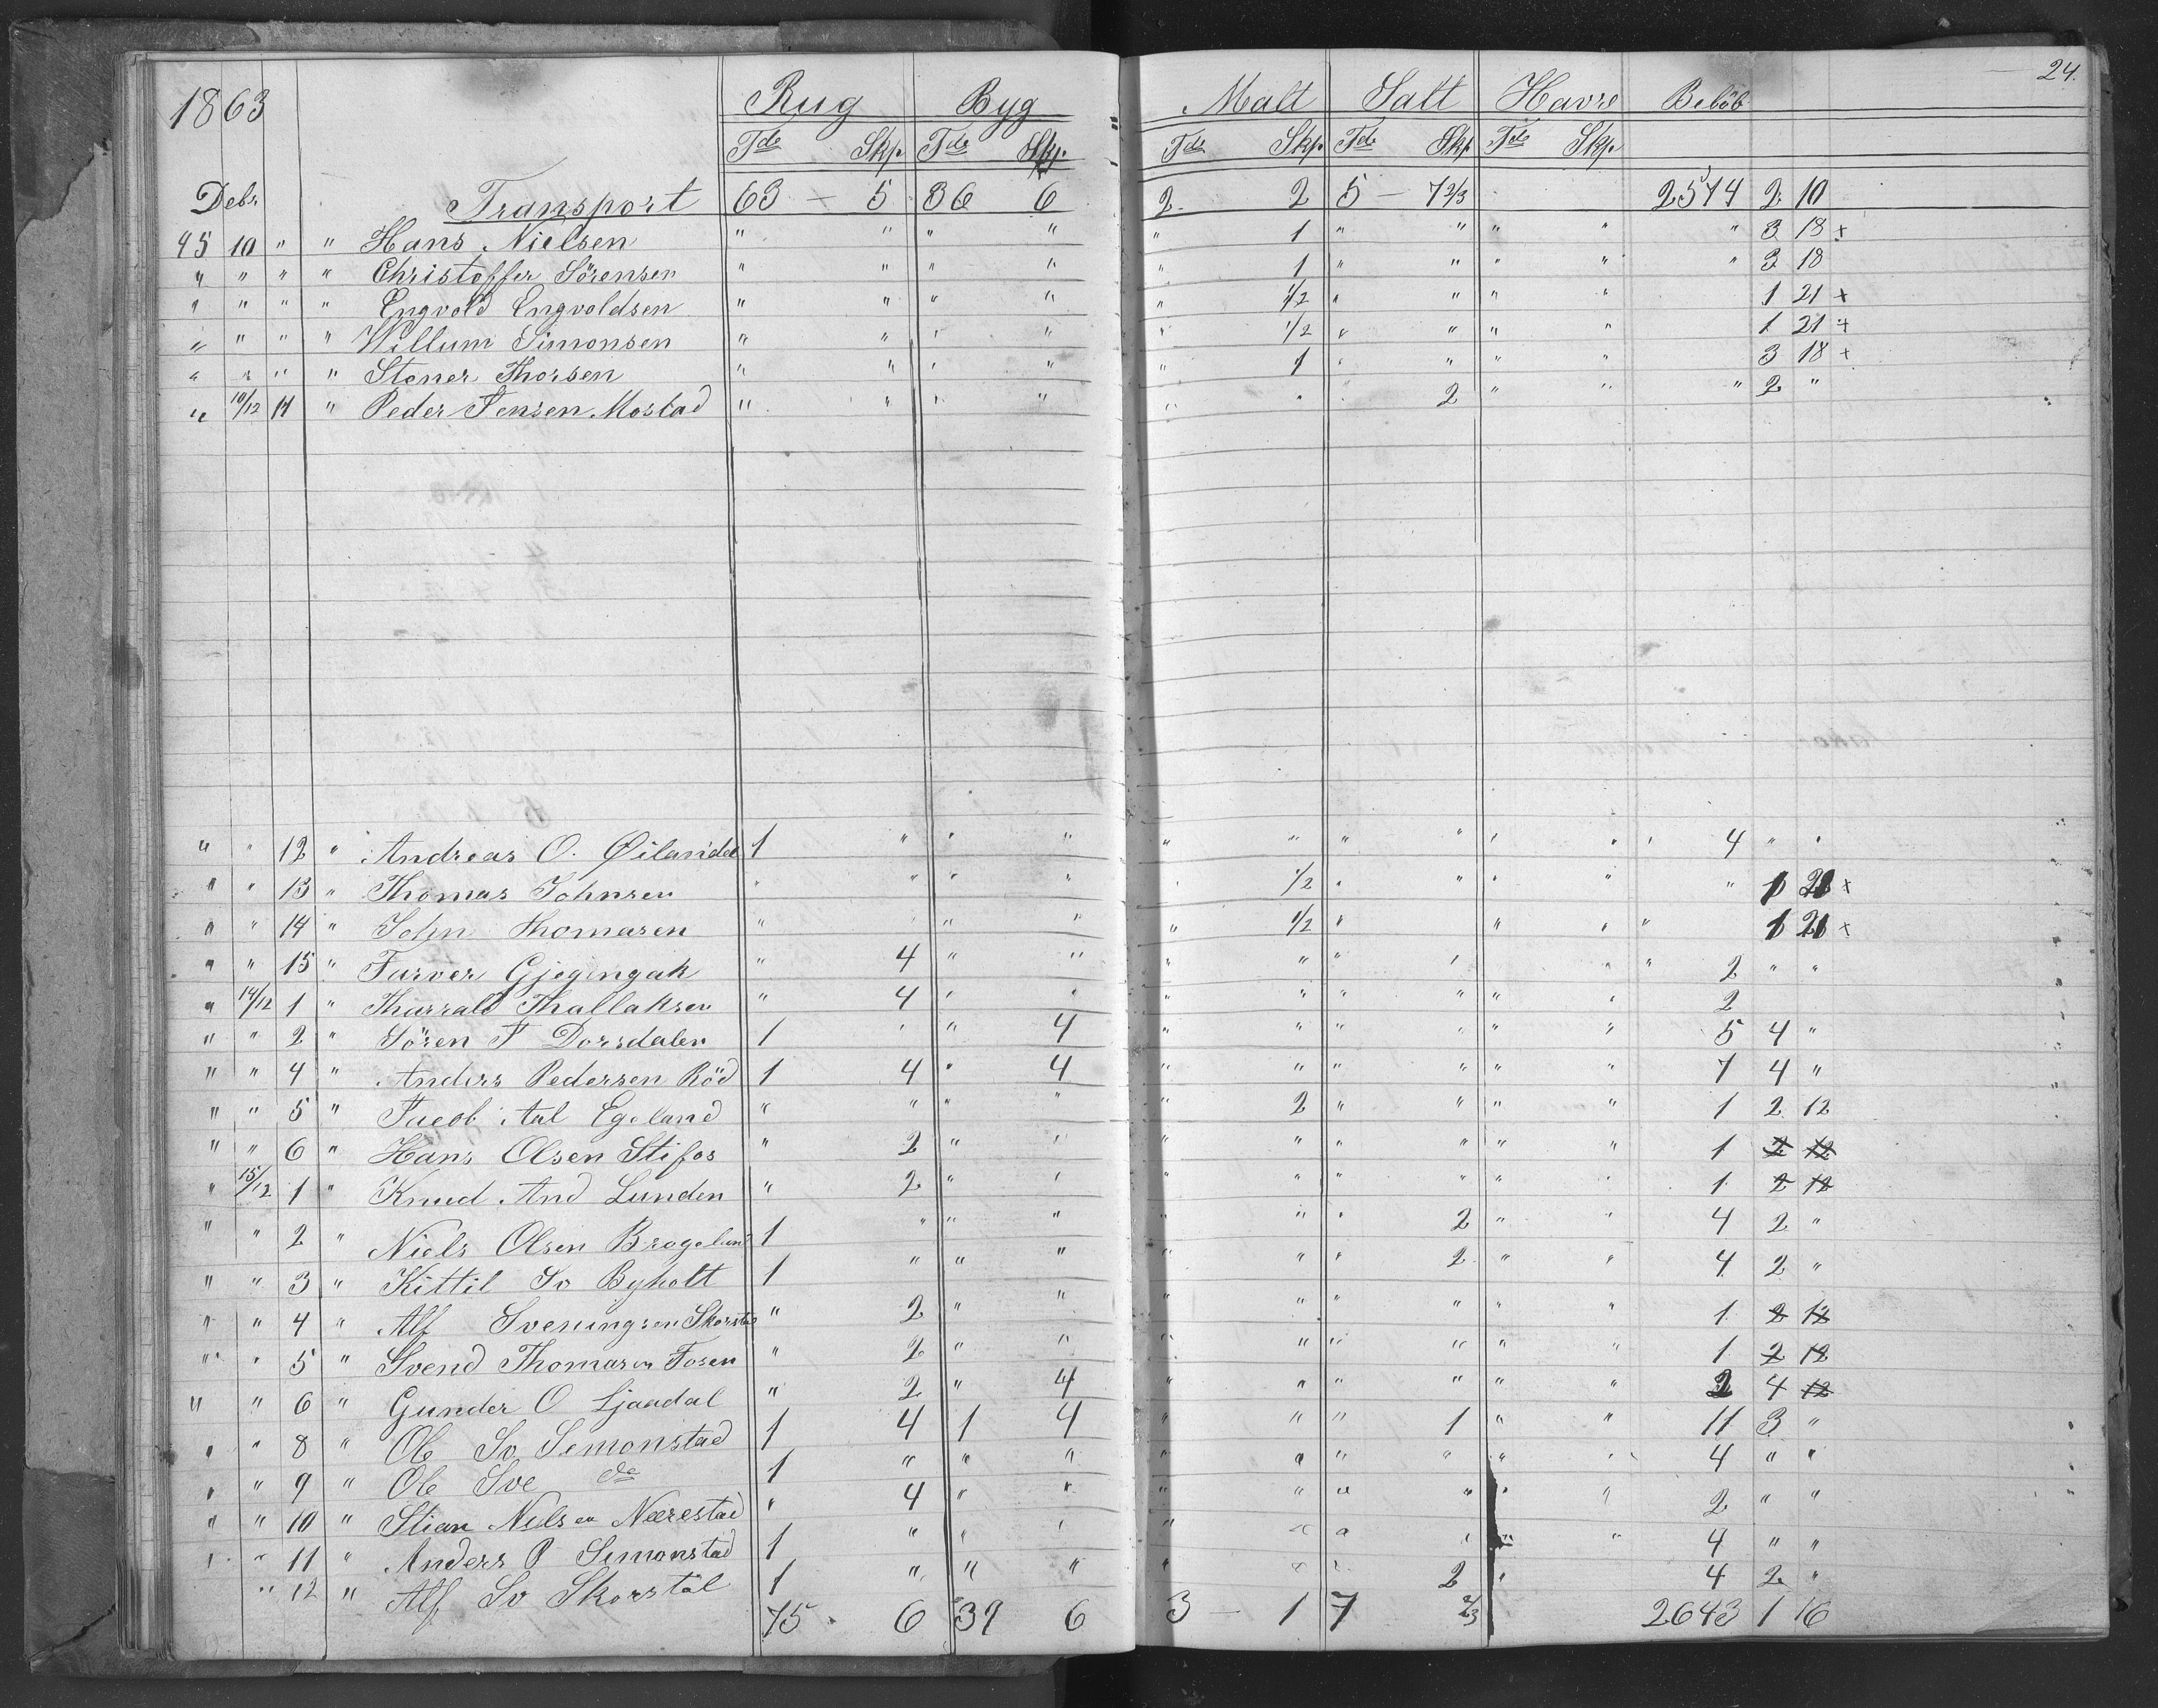 24.
1863 Rug Byg Malt Salt Havre Belöb
Tde Skp Tde Skp. Tde Skp. Tde Skp Tde Skp.
Debr Transport 63 - 5 36 6 2 2 5 - 7 2/3 2574 2 10
45 10 " " Hans Nielsen " " " " " 1 " " " " " 3 18 +
" " " " Christoffer Sörensen " " " " " 1 " " " " " 3 18
" " " " Engvold Engvoldsen " " " " " 1/2 " " " " 1 21 +
" " " " Willum Simonsen " " " " " 1/2 " " " " 1 21 +
" " " " Stener Thorsen " " " " " 1 " " " " 3 18 +
" 10/12 11 " Peder Jensen Mostad " " " " " " " 2 " " " 2 "
" " 12 " Andreas O. Øilandet 1 " " " " " " " " " " 4 " "
" " 13 " Thomas Johnsen " " " " " 1/2 " " " " " 1 21 +
" " 14 " John Thomasen " " " " 1/2 " " " " 1 21 +
" " 15 " Tarver " 4 " " " " " " " " 2 " "
" 14/12 1 " Tharrald Thallaksen " 4 " " " " " " " " 2
" " 2 " Sören J Dorsdalen 1 " " 4 " " " " " " 5 4 "
" " 4 " Anders Pedersen Röd 1 4 " 4 " " " " " " 7 4 "
" " 5 " Jacob Aal Egeland " " " " " 2 " " " " 1 2 12
" " 6 " Hans Olsen Stifos " 2 " " " " " " " " 1 2 12
" 15/12 1 " Knud And Lunden " 2 " " " " " " " " 1 2 12
" " 2 " Niels Olsen Brogeland 1 " " " " " " 2 " " 4 2 "
" " 3 " Kittil Sv Byholt 1 " " " " " " 2 " " 4 2 "
" " 4 " Alf Sveningsen Skorstøl " 2 " " " " " " " " 1 2 12
" " 5 " Svend Thomasen Fosen " 2 " " " " " " " " 1 2 12
" " 6 " Gunder O Ljaadal " 2 " 4 " " " " " " 2 4 12
" " 8 " Ole Sv Semonstad 1 4 1 4 " " " 1 " " 11 3 "
" " 9 " Ole Sve do 1 " " " " " " " " " 4 " "
" " 10 " Stian Nilsen Nærestad " 4 " " " " " " " " 2 " "
" " 11 " Anders P Semonstad 1 " " " " " " " " " 4 " "
" 12 " Alf Sv Skorstøl 1 " " " " " " 2 " 4 2 "
75 6 39 6 3 - 1 7 2/3 2643 1 16